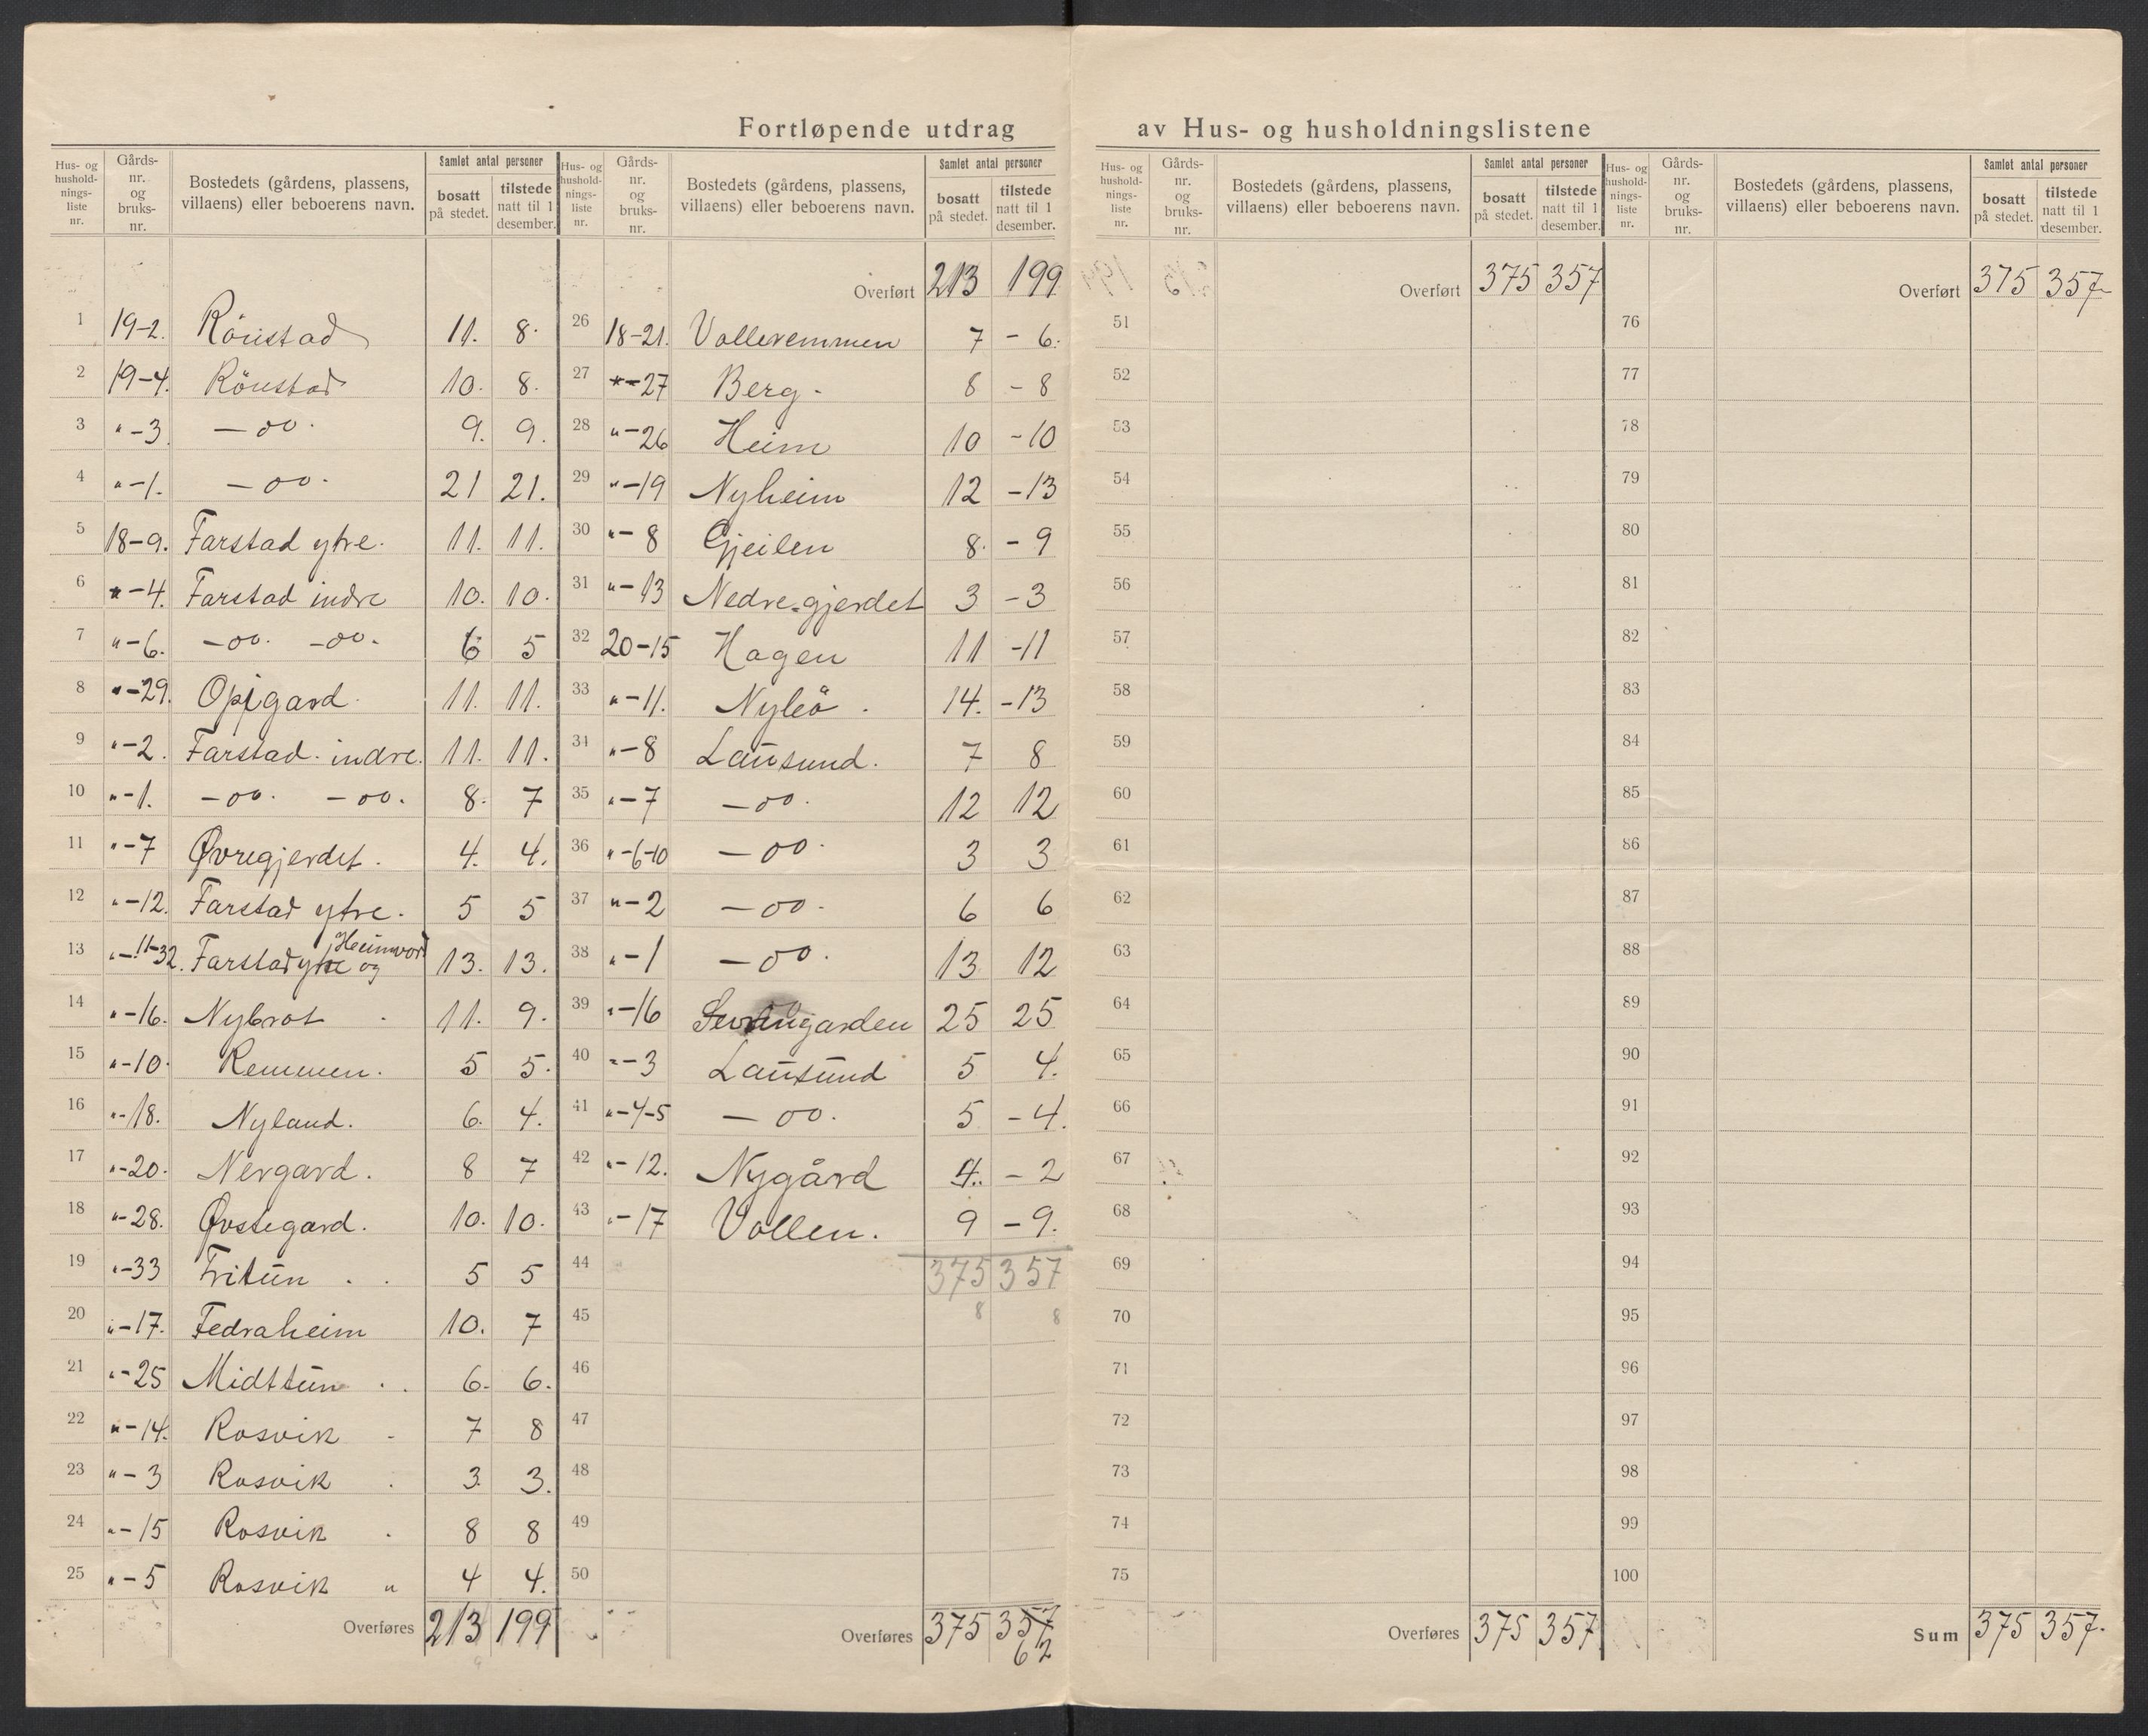 Fortløpende utdrag av Hus- og husholdningslistene
Hus- og husholdnings- liste nr. | Gårds- nr. og bruks- nr. | Bostedets (gårdens, plassens, villaens) eller beboerens navn. | Samlet antal personer | bosatt på stedet. | tilstede natt til 1 desember.
1 19-2. Rönstad 11. 8.
2 19-4. Rönstad 10. 8.
3 "-3. -oo. 9. 9.
4 "-1. -oo. 21 21.
5 18-9. Farstad ytre. 11. 11.
6 "-4. Farstad indre 10. 10.
7 "-6. -oo. -oo. 6 5
8 "-29. Oppgard. 11. 11.
9 "-2. Farstad indre. 11. 11.
10 "-1. -oo. -oo. 8. 7
11 "-7 Øvregjerdet. 4. 4.
12 "-12. Farstad ytre. 5 5
13 "-11-32. Farstad ytre og Heimvord 13. 13.
14 "-16. Nybrot 11. 9.
15 "-10. Remmen. 5 5.
16 "-18. Nyland. 6. 4.
17 "-20. Nergard. 8 7
18 "-28. Øvstegard. 10. 10.
19 "-33 Fritün 5 5
20 "-17. Fedraheim 10. 7
21 "-25 Midttün 6. 6.
22 "-14. Rosvik 7 8
23 "-3 Rosvik 3. 3.
24 "-15 Rosvik 8 8
25 "-5 Rosvik " 4 4.
Overføres 213 199
Hus- og husholdnings- liste nr. | Gårds- nr. og bruks- nr. | Bostedets (gårdens, plassens, villaens) eller beboerens navn. | Samlet antal personer | bosatt på stedet. | tilstede natt til 1 desember.
Overført 213 199
26 18-21. Volleremmen 7 - 6.
27 "-27 Berg - 8 - 8
28 "-26 Heim 10 - 10
29 "-19 Nyheim 12 - 13
30 "-8 Gjeilen 8. - 9
31 "-13 Nedre-gjerdet 3 - 3
32 20-15 Hagen 11 - 11
33 "-11. Nyleö. 14. - 13
34 "-8 Laüsund. 7 8
35 "-7 -oo. 12 12
36 "-6-10 -oo. 3 3
37 "-2 -oo. 6 6
38 "-1 -oo. 13 12
39 "-16 25 25
40 "-3 Laüsünd 5 4.
41 "-4-5 -oo. 5 - 4.
42 "-12. Nygård 4. - 2
43 "-17 Vollen. 9 - 9.
44 375 357
45 8 8
46
47
48
49
50
Overføres 375 357
62
Hus- og husholdnings- liste nr. | Gårds- nr. og bruks- nr. | Bostedets (gårdens, plassens, villaens) eller beboerens navn. | Samlet antal personer | bosatt på stedet. | tilstede natt til 1 desember.
Overført 375 357
51
52
53
54
55
56
57
58
59
60
61
62
63
64
65
66
67
68
69
70
71
72
73
74
75
Overføres 375 357
Hus- og husholdnings- liste nr. | Gårds- nr. og bruks- nr. | Bostedets (gårdens, plassens, villaens) eller beboerens navn. | Samlet antal personer | bosatt på stedet. | tilstede natt til 1 desember.
Overført 375 357
76
77
78
79
80
81
82
83
84
85
86
87
88
89
90
91
92
93
94
95
96
97
98
99
100
Sum 375 357.